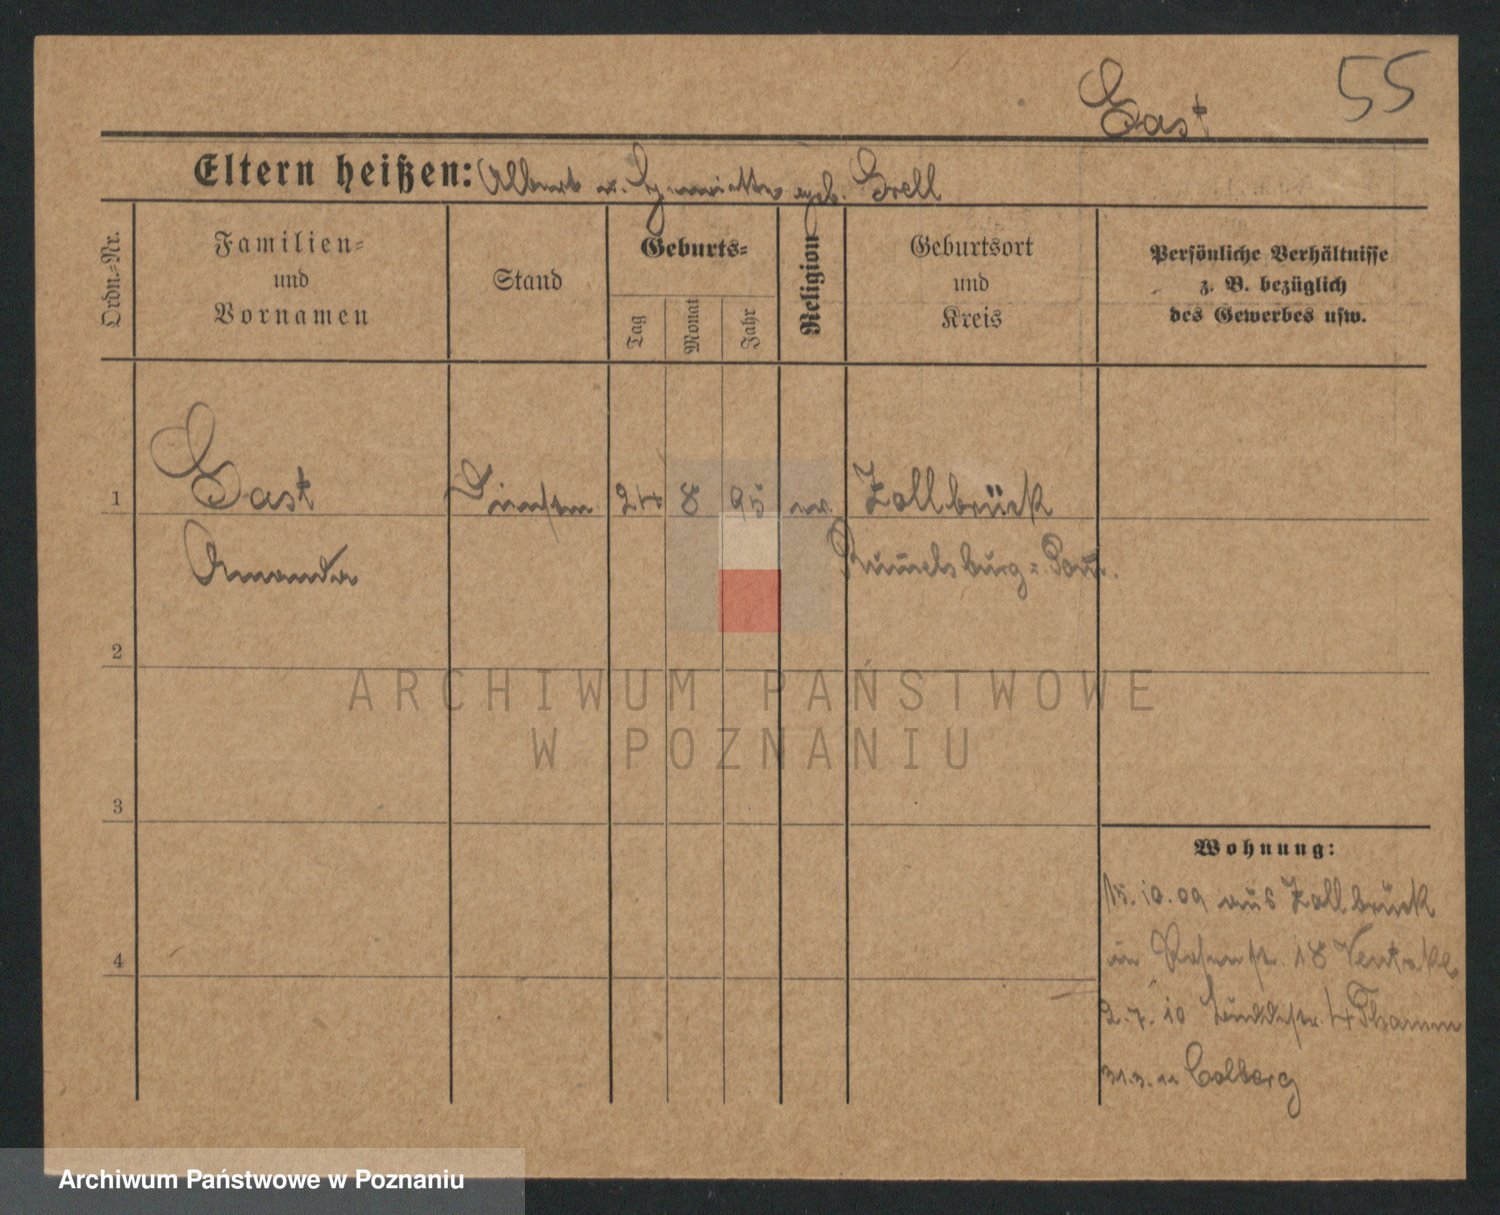 55
Gast
Eltern heißen: Albert u. Henriette geb. Grell
Ordn.-Nr.
Familien-
und
Vornamen
Stand
Geburts-
Tag
Monat
Jahr
Religion
Geburtsort
und
Kreis
Persönliche Verhältnisse
z. B. bezüglich
des Gewerbes usw.
1 Gast 24 8 95 ev. Zollbrück
Amanda Rummelsburg = Pom.
2
ARCHIWUM PAŃSTWOWE
W POZNANIU
3
Wohnung:
15.10.09 aus Zollbrück
in 18
4
2.7.10 4 Thamm
31.3.11 Colberg
Archiwum Państwowe w Poznaniu